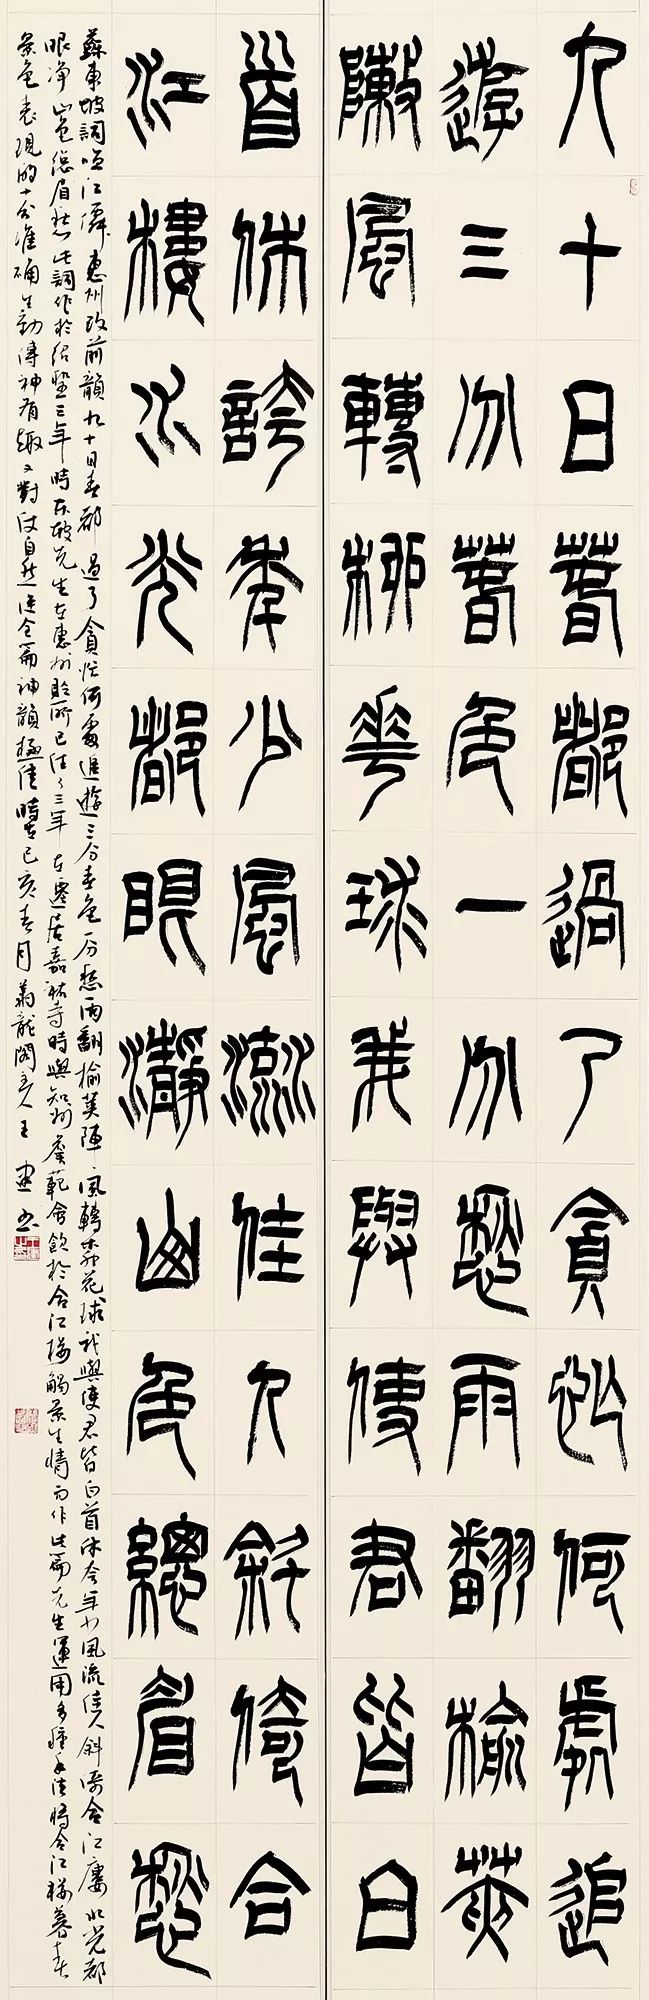 九十日春都過了貪忙何處追
遊三分春色一分愁雨翻榆莢
陣風轉柳花球我與使君皆白
首休誇年少風流佳人斜倚合
江樓水光都眼瀞山色總眉愁
蘇東坡詞臨江僊 惠州改前韻 九十日春都過了貪忙何處追遊三分春色一分愁雨翻榆莢陣風轉柳花球我與使君皆白首休夸年少風流佳人斜倚合江樓水光都
眼净山色總眉愁此詞作於紹聖三年時東坡先生在惠州貶所已三年在遷居嘉祐寺時與知州詹範會飲於合江樓觸景生情而作此篇先生運用多種手法將合江樓暮春
景色表現的十分准確生動傳神有趣對仗自然全篇神韻極佳時在己亥春月龍閣主人王